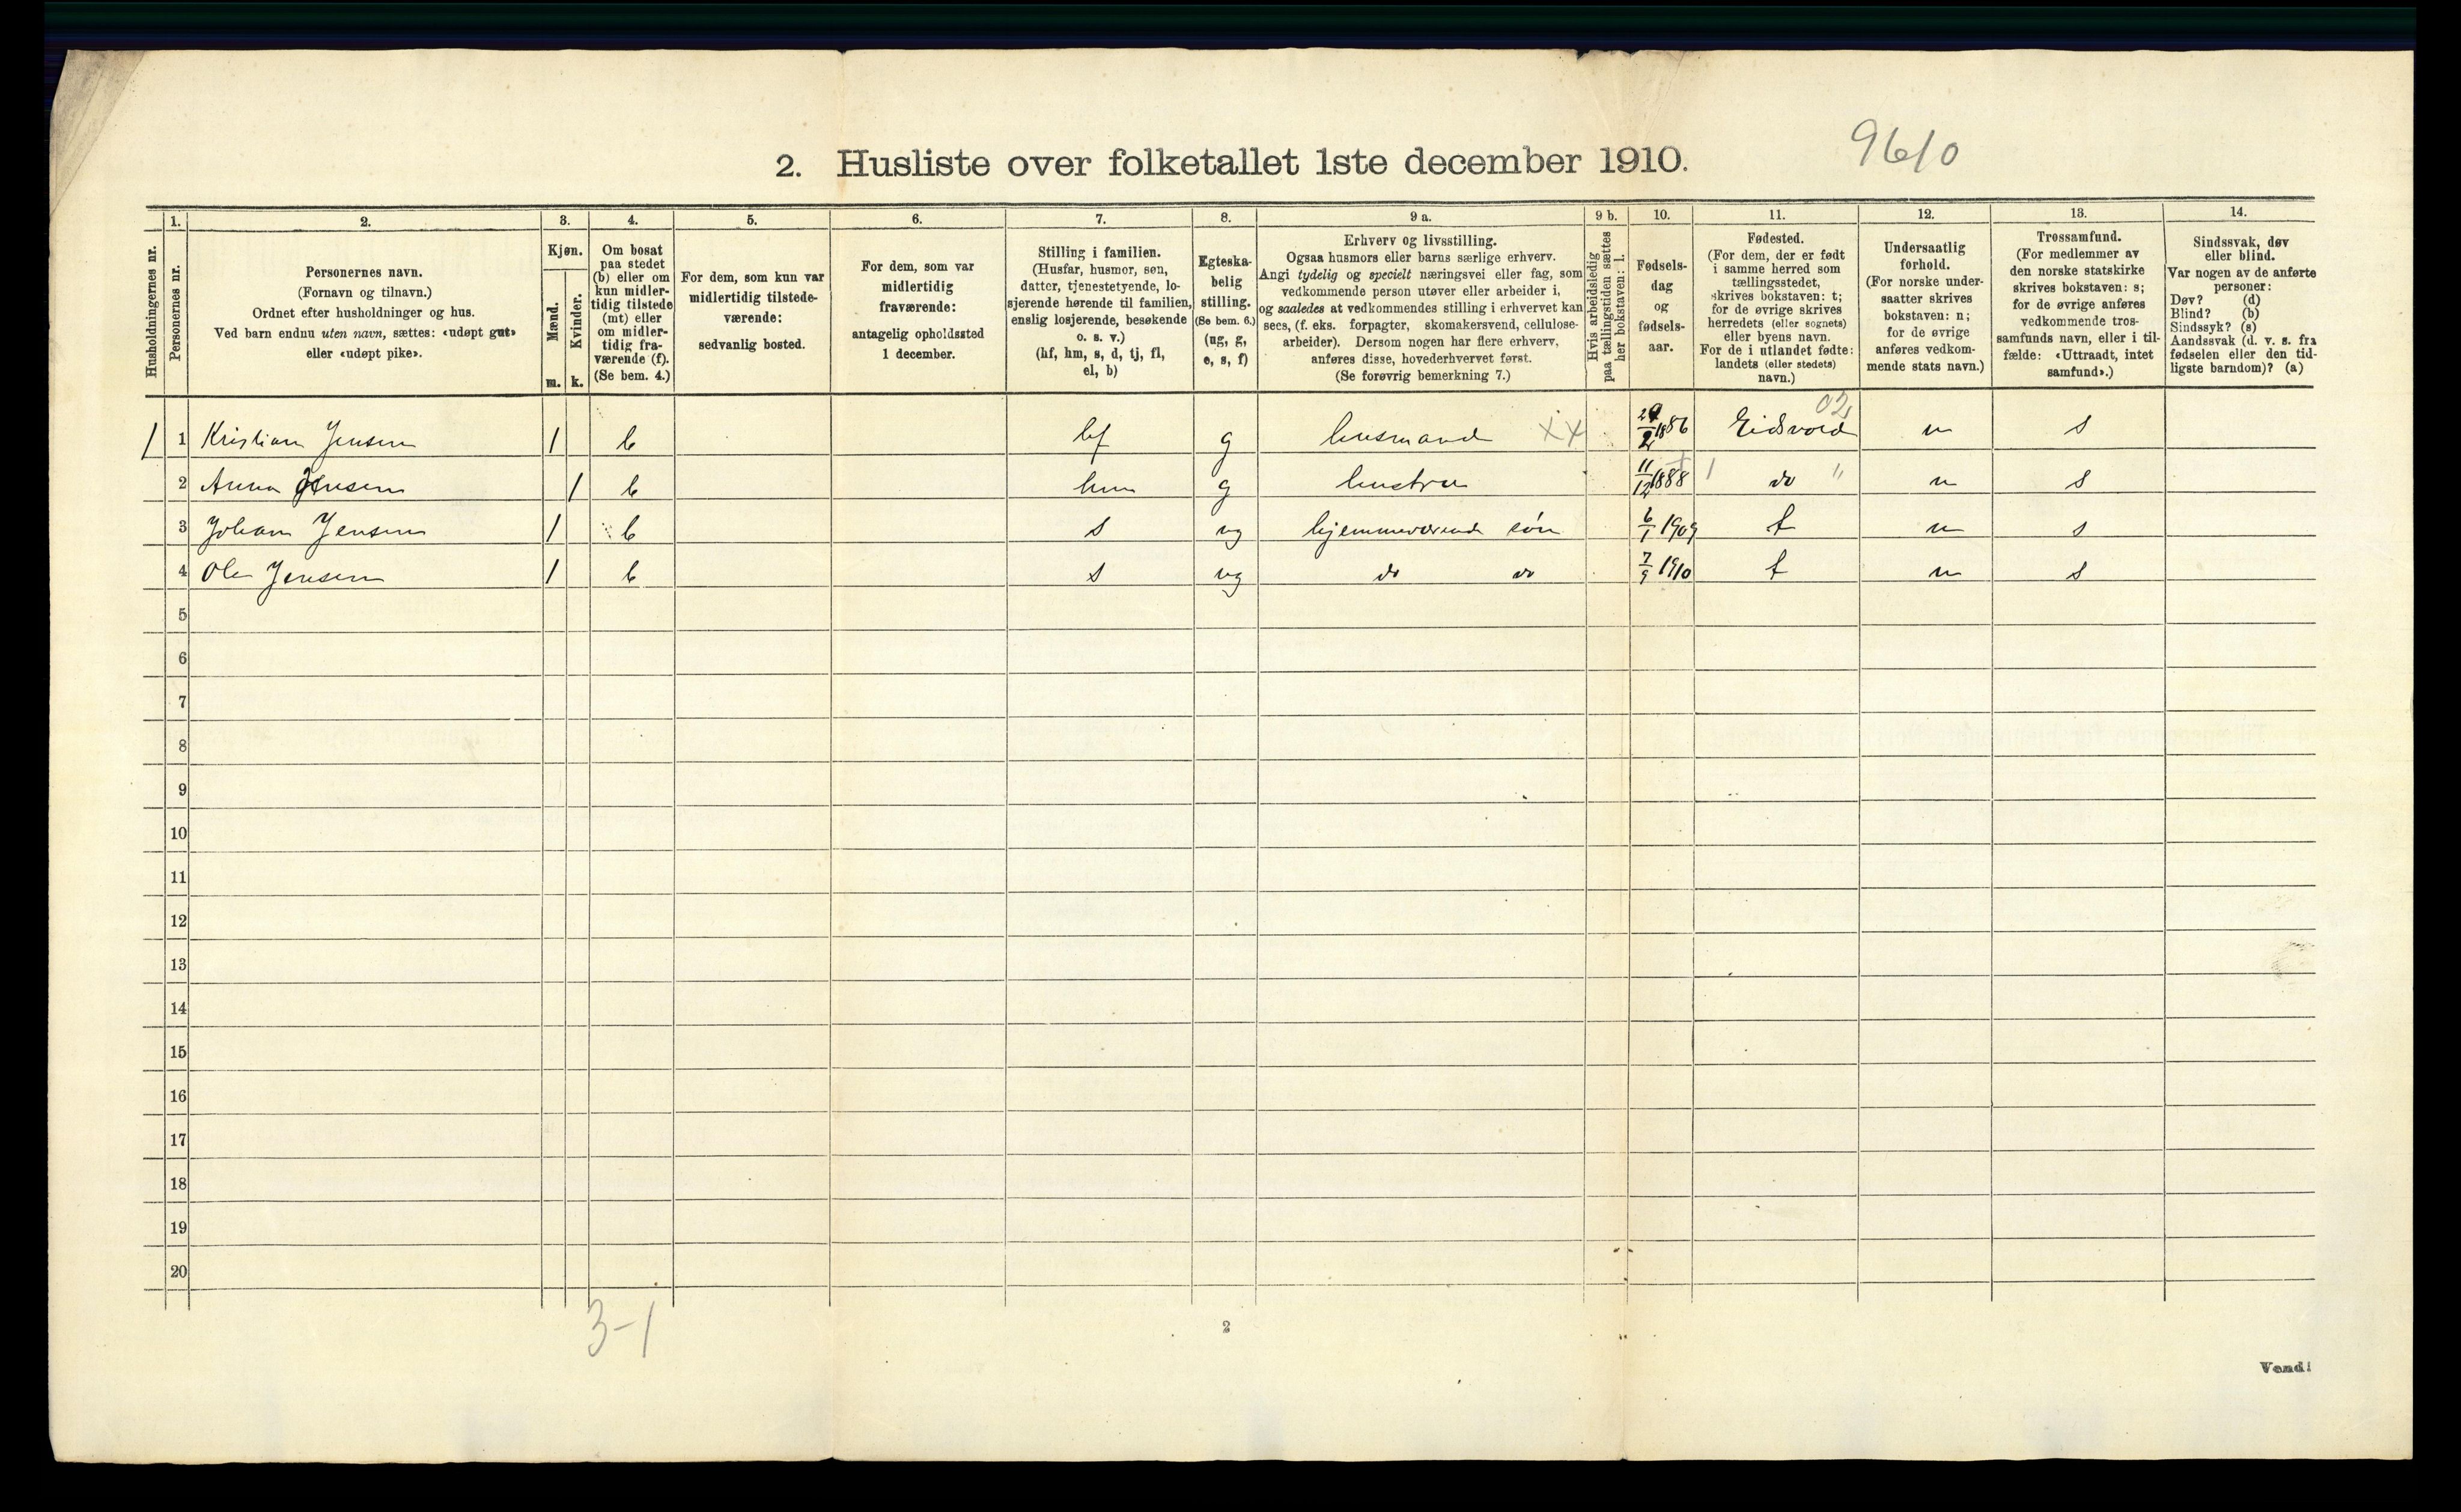 9610
2. Husliste over folketallet 1ste december 1910.
1. 2. 3. 4. 5. 6. 7. 8. 9 a. 9 b. 10. 11. 12. 13. 14.
Husholdningernes nr.
Personernes nr.
Personernes navn.
(Fornavn og tilnavn.)
Ordnet efter husholdninger og hus.
Ved barn endnu uten navn, sættes: «udøpt gut»
eller «udøpt pike».
Kjøn.
Mænd.
Kvinder.
m. k.
Om bosat
paa stedet
(b) eller om
kun midler-
tidig tilstede
(mt) eller
om midler-
tidig fra-
værende (f).
(Se bem. 4.)
For dem, som kun var
midlertidig tilstede-
værende:
sedvanlig bosted.
For dem, som var
midlertidig
fraværende:
antagelig opholdssted
1 december.
Stilling i familien.
(Husfar, husmor, søn,
datter, tjenestetyende, lo-
sjerende hørende til familien,
enslig losjerende, besøkende
o. s. v.)
(hf, hm, s, d, tj, fl,
el, b)
Egteska-
belig
stilling.
(Se bem. 6.)
(ug, g,
e, s, f)
Erhverv og livsstilling.
Ogsaa husmors eller barns særlige erhverv.
Angi tydelig og specielt næringsvei eller fag, som
vedkommende person utøver eller arbeider i,
og saaledes at vedkommendes stilling i erhvervet kan
sees, (f. eks. forpagter, skomakersvend, cellulose-
arbeider). Dersom nogen har flere erhverv,
anføres disse, hovederhvervet først.
(Se forøvrig bemerkning 7.)
Hvis arbeidsledig
paa tællingstiden sættes
her bokstaven: l.
Fødsels-
dag
og
fødsels-
aar.
Fødested.
(For dem, der er født
i samme herred som
tællingsstedet,
skrives bokstaven: t;
for de øvrige skrives
herredets (eller sognets)
eller byens navn.
For de i utlandet fødte:
landets (eller stedets)
navn.)
Undersaatlig
forhold.
(For norske under-
saatter skrives
bokstaven: n;
for de øvrige
anføres vedkom-
mende stats navn.)
Trossamfund.
(For medlemmer av
den norske statskirke
skrives bokstaven: s;
for de øvrige anføres
vedkommende tros-
samfunds navn, eller i til-
fælde: «Uttraadt, intet
samfund».)
Sindssvak, døv
eller blind.
Var nogen av de anførte
personer:
Døv? (d)
Blind? (b)
Sindssyk? (s)
Aandssvak (d. v. s. fra
fødselen eller den tid-
ligste barndom)? (a)
02
1 1 Kristian Jensen 1 b hf g husmand XX 2/1886 Eidsvold n s
2 Anna Jensen 1 b hm g hustru 11/12 1888 do " n s
3 Johan Jensen 1 b s ug hjemmeværende søn 6/1 1909 t n s
4 Ole Jensen 1 b s ug do do 7/9 1910 t n s
5
6
7
8
9
10
11
12
13
14
15
16
17
18
19
20
3-1
2
Vend!